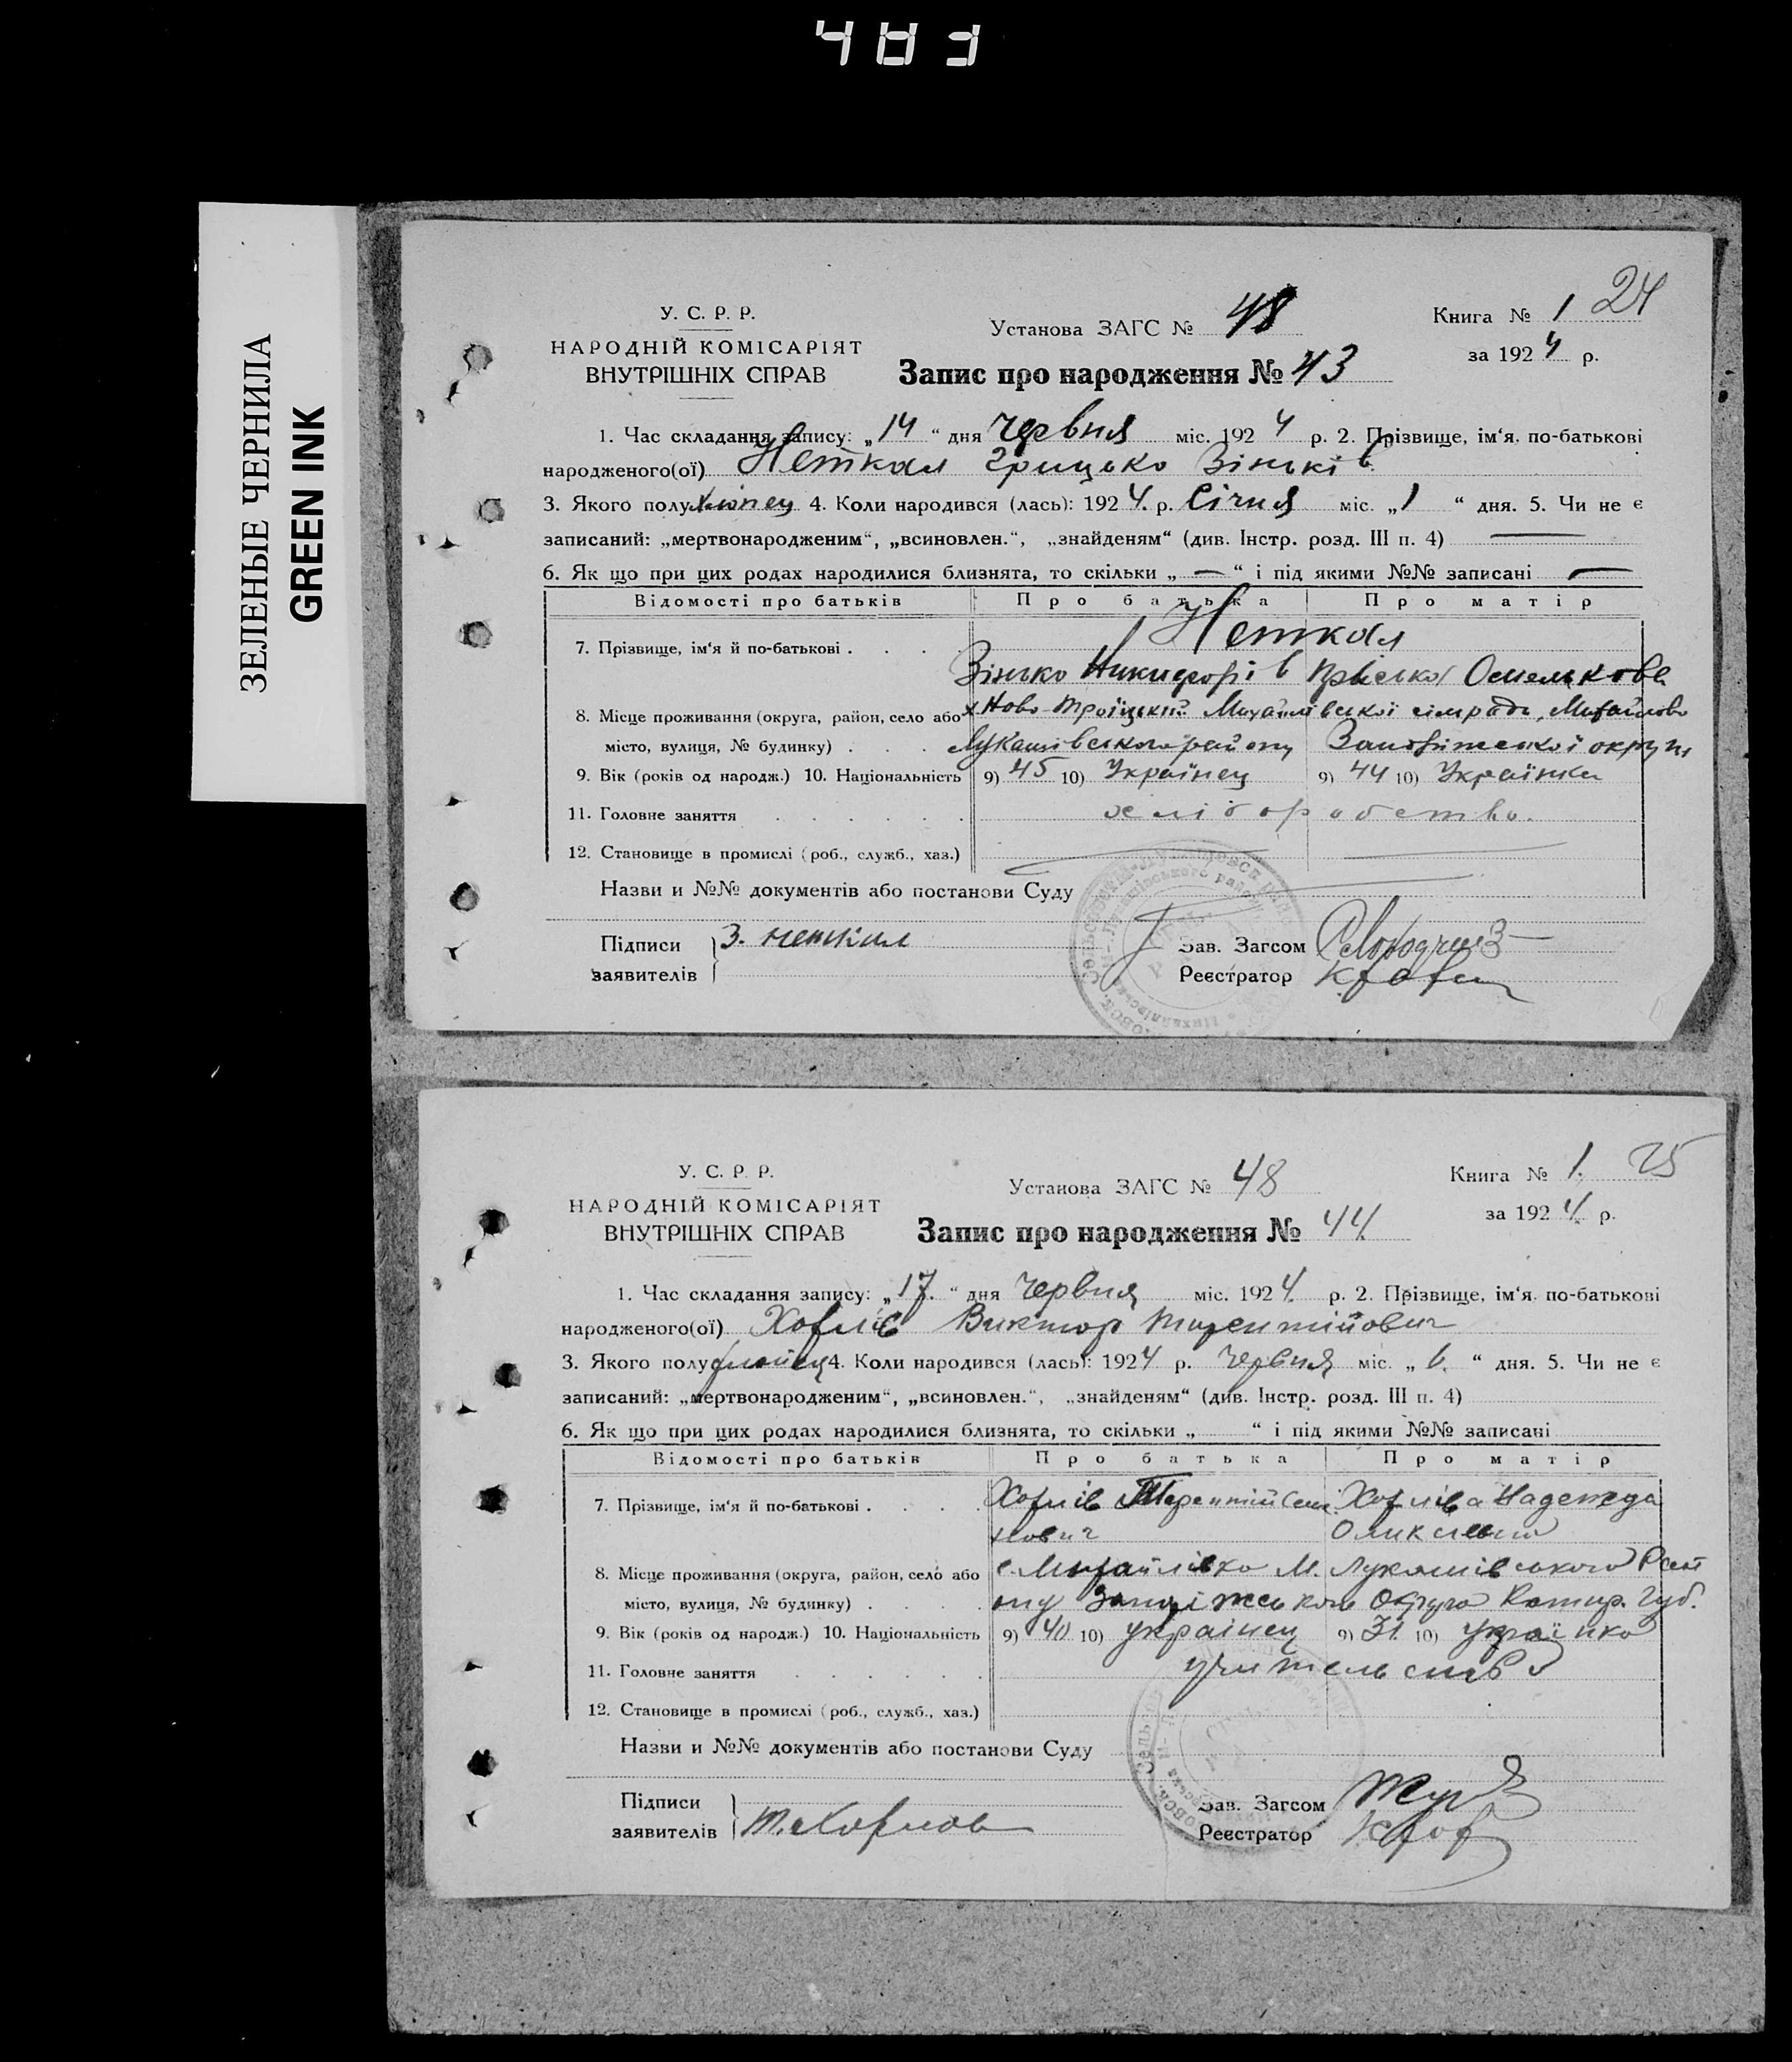 483
ЗЕЛЕНЫЕ ЧЕРНИЛА
GREEN INK
24
У. С. Р. Р.
НАРОДНІЙ КОМІСАРІЯТ
ВНУТРІШНІХ СПРАВ
Установа ЗАГС № 48
Запис про народження № 43
Книга № 1
за 1924 р.
1. Час складання запису: „14“ дня червня міс. 1924 р. 2. Прізвище, ім‘я, по-батькові
народженого(ої) Неткал Грицько Зіньків
3. Якого полу хлопец 4. Коли народився (лась): 1924 р. Січня міс. „1“ дня. 5. Чи не є
записаний: „мертвонародженим“, „всиновлен.“, „знайденям“ (див. Інстр. розд. III п. 4) —
6. Як що при цих родах народилися близнята, то скільки „—“ і під якими №№ записані —
Відомості про батьків Про батька Про матір
Неткал
7. Прізвище, ім‘я й по-батькові
Зінько Никифорів Пріська Омелькова
8. Місце проживання (округа, район, село або х Ново-Троіцький Михайлівської сільради, Михайлово
місто, вулиця, № будинку) Лукашівського району Запоріжської округи
9. Вік (років од народж.) 10. Національність 9) 45 10) Українец 9) 44 10) Українка
11. Головне заняття хліборобство.
12. Становище в промислі (роб., служб., хаз.)
Назви и №№ документів або постанови Суду
Підписи
заявителів З. Неткал
Зав. Загсом
Реєстратор
25
У. С. Р. Р.
НАРОДНІЙ КОМІСАРІЯТ
ВНУТРІШНІХ СПРАВ
Установа ЗАГС № 48
Запис про народження № 44
Книга № 1.
за 1924 р.
1. Час складання запису: „17.“ дня червня міс. 1924 р. 2. Прізвище, ім‘я, по-батькові
народженого(ої) Хорлів Виктор Терентійович
3. Якого полу 4. Коли народився (лась): 1924 р. червня міс. „6.“ дня. 5. Чи не є
записаний: „мертвонародженим“, „всиновлен.“, „знайденям“ (див. Інстр. розд. III п. 4)
6. Як що при цих родах народилися близнята, то скільки „ “ і під якими №№ записані
Відомості про батьків Про батька Про матір
7. Прізвище, ім‘я й по-батькові Хорлів Терентій Хорліва Надежда
8. Місце проживання (округа, район, село або с. Михайлівка М. Лукашівського Рай
місто, вулиця, № будинку) ону Запоріжськоі Округа Катир. Губ.
9. Вік (років од народж.) 10. Національність 9) 40 10) українец 9) 31 10) українка
11. Головне заняття учительство
12. Становище в промислі (роб., служб., хаз.)
Назви и №№ документів або постанови Суду
Підписи
заявителів Т. Хорлов
Зав. Загсом
Реєстратор